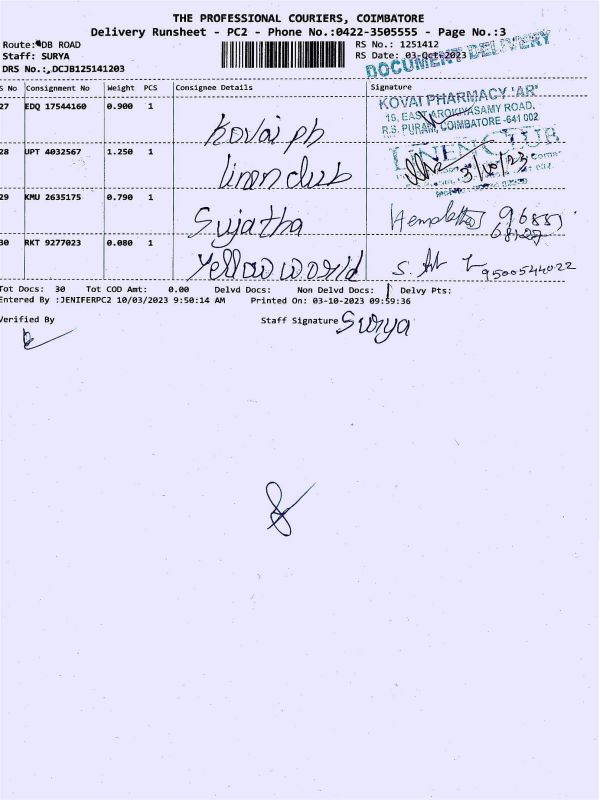 THE PROFESSIONAL COURIERS, COIMBATORE
Delivery Runsheet - PC2 - Phone No.:0422-3505555 - Page No.:3
Route: DB ROAD RS No.: 1251412
Staff: SURYA RS Date: 03-Oct-2023
DOCUMENT DELIVERY
DRS No.: DCJB125141203
S No Consignment No Weight PCS Consignee Details Signature
27 EDQ 17544160 0.900 1 Kovai ph
KOVAI PHARMACY 'AR'
16, EAST AROKIYASAMY ROAD,
R.S. PURAM, COIMBATORE -641 002
28 UPT 4032567 1.250 1 Linen club
LINEN CLUB
3/10/23
29 KMU 2635175 0.790 1 Sujatha
96885
68127
30 RKT 9277023 0.080 1 Yellow world
9500544022
Tot Docs: 30 Tot COD Amt: 0.00 Delvd Docs: Non Delvd Docs: Delvy Pts:
Entered By :JENIFERPC2 10/03/2023 9:50:14 AM Printed On: 03-10-2023 09:59:36
Verified By Staff Signature Surya